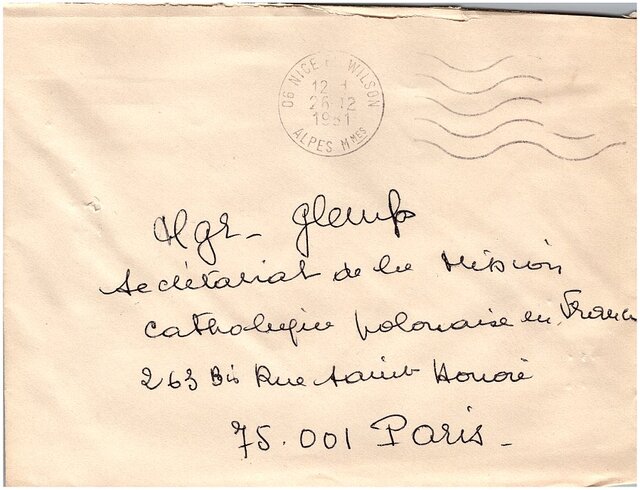 06 NICE WILSON
12 H
26 12
1981
ALPES MMES
Mgr - Glemp
Secrétariat de la Mission
Catholique polonaise en France
263 Bis Rue Saint Honoré
75.001 Paris -